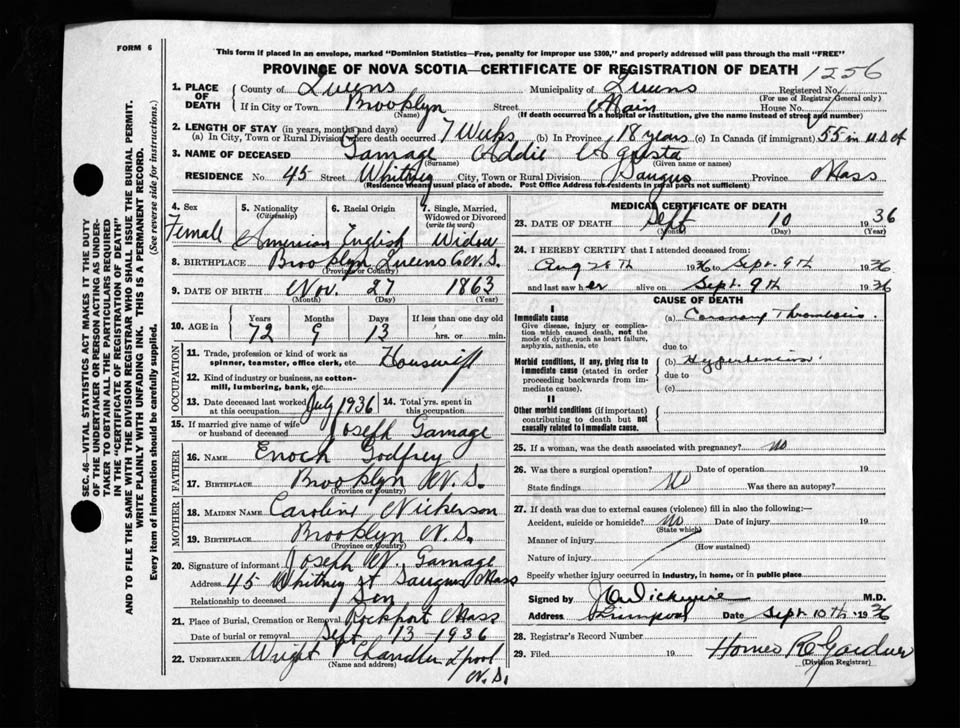 FORM 6
This form if placed in an envelope, marked "Dominion Statistics—Free, penalty for improper use $300," and properly addressed will pass through the mail "FREE"
PROVINCE OF NOVA SCOTIA—CERTIFICATE OF REGISTRATION OF DEATH 1256
1. PLACE OF DEATH County of Queens Municipality of Queens Registered No.
(For use of Registrar General only)
If in City or Town Brooklyn Street Main House No.
(Name) (If death occurred in a hospital or institution, give the name instead of street and number)
2. LENGTH OF STAY (in years, months and days)
(a) In City, Town or Rural Division where death occurred 7 Weeks (b) In Province 18 years (c) In Canada (if immigrant) 55 in U.S of A
3. NAME OF DECEASED Gamage Addie Agusta
(Surname) (Given name or names)
RESIDENCE No. 45 Street Whitney City, Town or Rural Division Saugus Province Mass
(Residence means usual place of abode. Post Office Address for residents in rural parts not sufficient)
4. Sex Female
5. Nationality (Citizenship) American
6. Racial Origin English
7. Single, Married, Widowed or Divorced (write the word) Widow
8. BIRTHPLACE Brooklyn Queens Co N.S.
(Province or Country)
9. DATE OF BIRTH Nov. 27 1863
(Month) (Day) (Year)
10. AGE in Years Months Days If less than one day old
72 9 13 hrs. or min.
OCCUPATION
11. Trade, profession or kind of work as spinner, teamster, office clerk, etc. Housewife
12. Kind of industry or business, as cotton-mill, lumbering, bank, etc.
13. Date deceased last worked at this occupation July 1936
14. Total yrs. spent in this occupation
15. If married give name of wife or husband of deceased Joseph Gamage
FATHER
16. Name Enoch Godfrey
17. BIRTHPLACE Brooklyn N.S.
(Province or Country)
MOTHER
18. MAIDEN NAME Caroline Nickerson
19. BIRTHPLACE Brooklyn N.S.
(Province or Country)
20. Signature of informant Joseph W. Gamage
Address 45 Whitney St Saugus Mass
Relationship to deceased Son
21. Place of Burial, Cremation or Removal Rockport Mass
Date of burial or removal Sept 13-1936
22. UNDERTAKER Wright Chandler L'pool N.S.
(Name and address)
MEDICAL CERTIFICATE OF DEATH
23. DATE OF DEATH Sept 10 1936
(Month) (Day) (Year)
24. I HEREBY CERTIFY that I attended deceased from:
Aug 28th 1936 to Sept. 9th 1936
and last saw her alive on Sept. 9th 1936
CAUSE OF DEATH
I
Immediate cause
Give disease, injury or complication which caused death, not the mode of dying, such as heart failure, asphyxia, asthenia, etc
(a) Coronary Thrombosis.
due to
Morbid conditions, if any, giving rise to immediate cause (stated in order proceeding backwards from immediate cause).
(b) Hypertension.
due to
(c)
II
Other morbid conditions (if important) contributing to death but not causally related to immediate cause.
25. If a woman, was the death associated with pregnancy? no
26. Was there a surgical operation? Date of operation 19
State findings No Was there an autopsy?
27. If death was due to external causes (violence) fill in also the following:—
Accident, suicide or homicide? no Date of injury 19
(State which)
Manner of injury
(How sustained)
Nature of injury
Specify whether injury occurred in industry, in home, or in public place
Signed by M.D.
Address Liverpool Date Sept 10th 1936
28. Registrar's Record Number
29. Filed 19 Homer R. Gardner
(Division Registrar)
SEC. 46—VITAL STATISTICS ACT MAKES IT THE DUTY
OF THE UNDERTAKER OR PERSON ACTING AS UNDER-
TAKER TO OBTAIN ALL THE PARTICULARS REQUIRED
IN THE "CERTIFICATE OF REGISTRATION OF DEATH"
AND TO FILE THE SAME WITH THE DIVISION REGISTRAR WHO SHALL ISSUE THE BURIAL PERMIT.
WRITE PLAINLY WITH UNFADING INK. THIS IS A PERMANENT RECORD.
Every item of information should be carefully supplied. (See reverse side for instructions.)